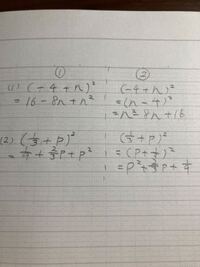 ① ②
(1) (-4+n)² (-4+n)²
= 16-8n+n² =(n-4)²
=n²-8n+16
(2) (1/3+p)² (1/3+p)²
= 1/9+2/3p+p² =(p+1/3)²
=p²+ p+1/9